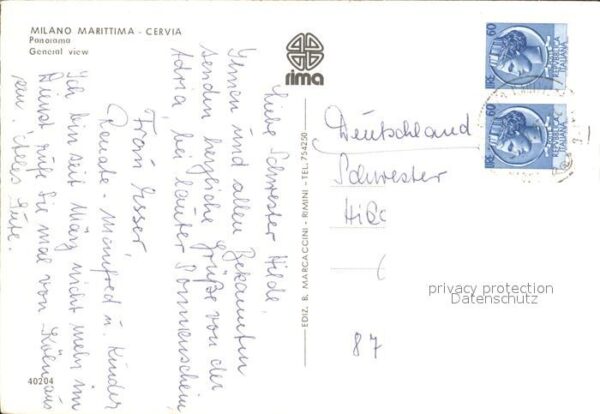 MILANO MARITTIMA - CERVIA
Panorama
General view
rima
Liebe Schwester Hilde,
Ihnen und allen Bekannten
senden herzliche Grüße von der
Adria, bei lauter Sonnenschein
Frau Esser
Renate - Manfred u. Kinder
Ich bin seit März nicht mehr im
Dienst, rufe Sie mal von Köln aus
an. Alles Gute.
EDIZ. B. MARCACCINI - RIMINI - TEL. 754250
LIRE 60
REPUBBLICA ITALIANA
LIRE 60
REPUBBLICA ITALIANA
Deutschland
Schwester
privacy protection
Datenschutz
87
40204